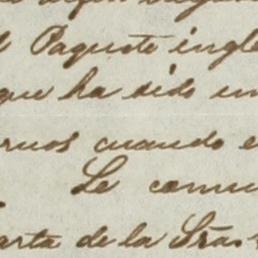 l Paquete ingle
que ha sido un
rnos cuando e
Se comu
arta de la Sras